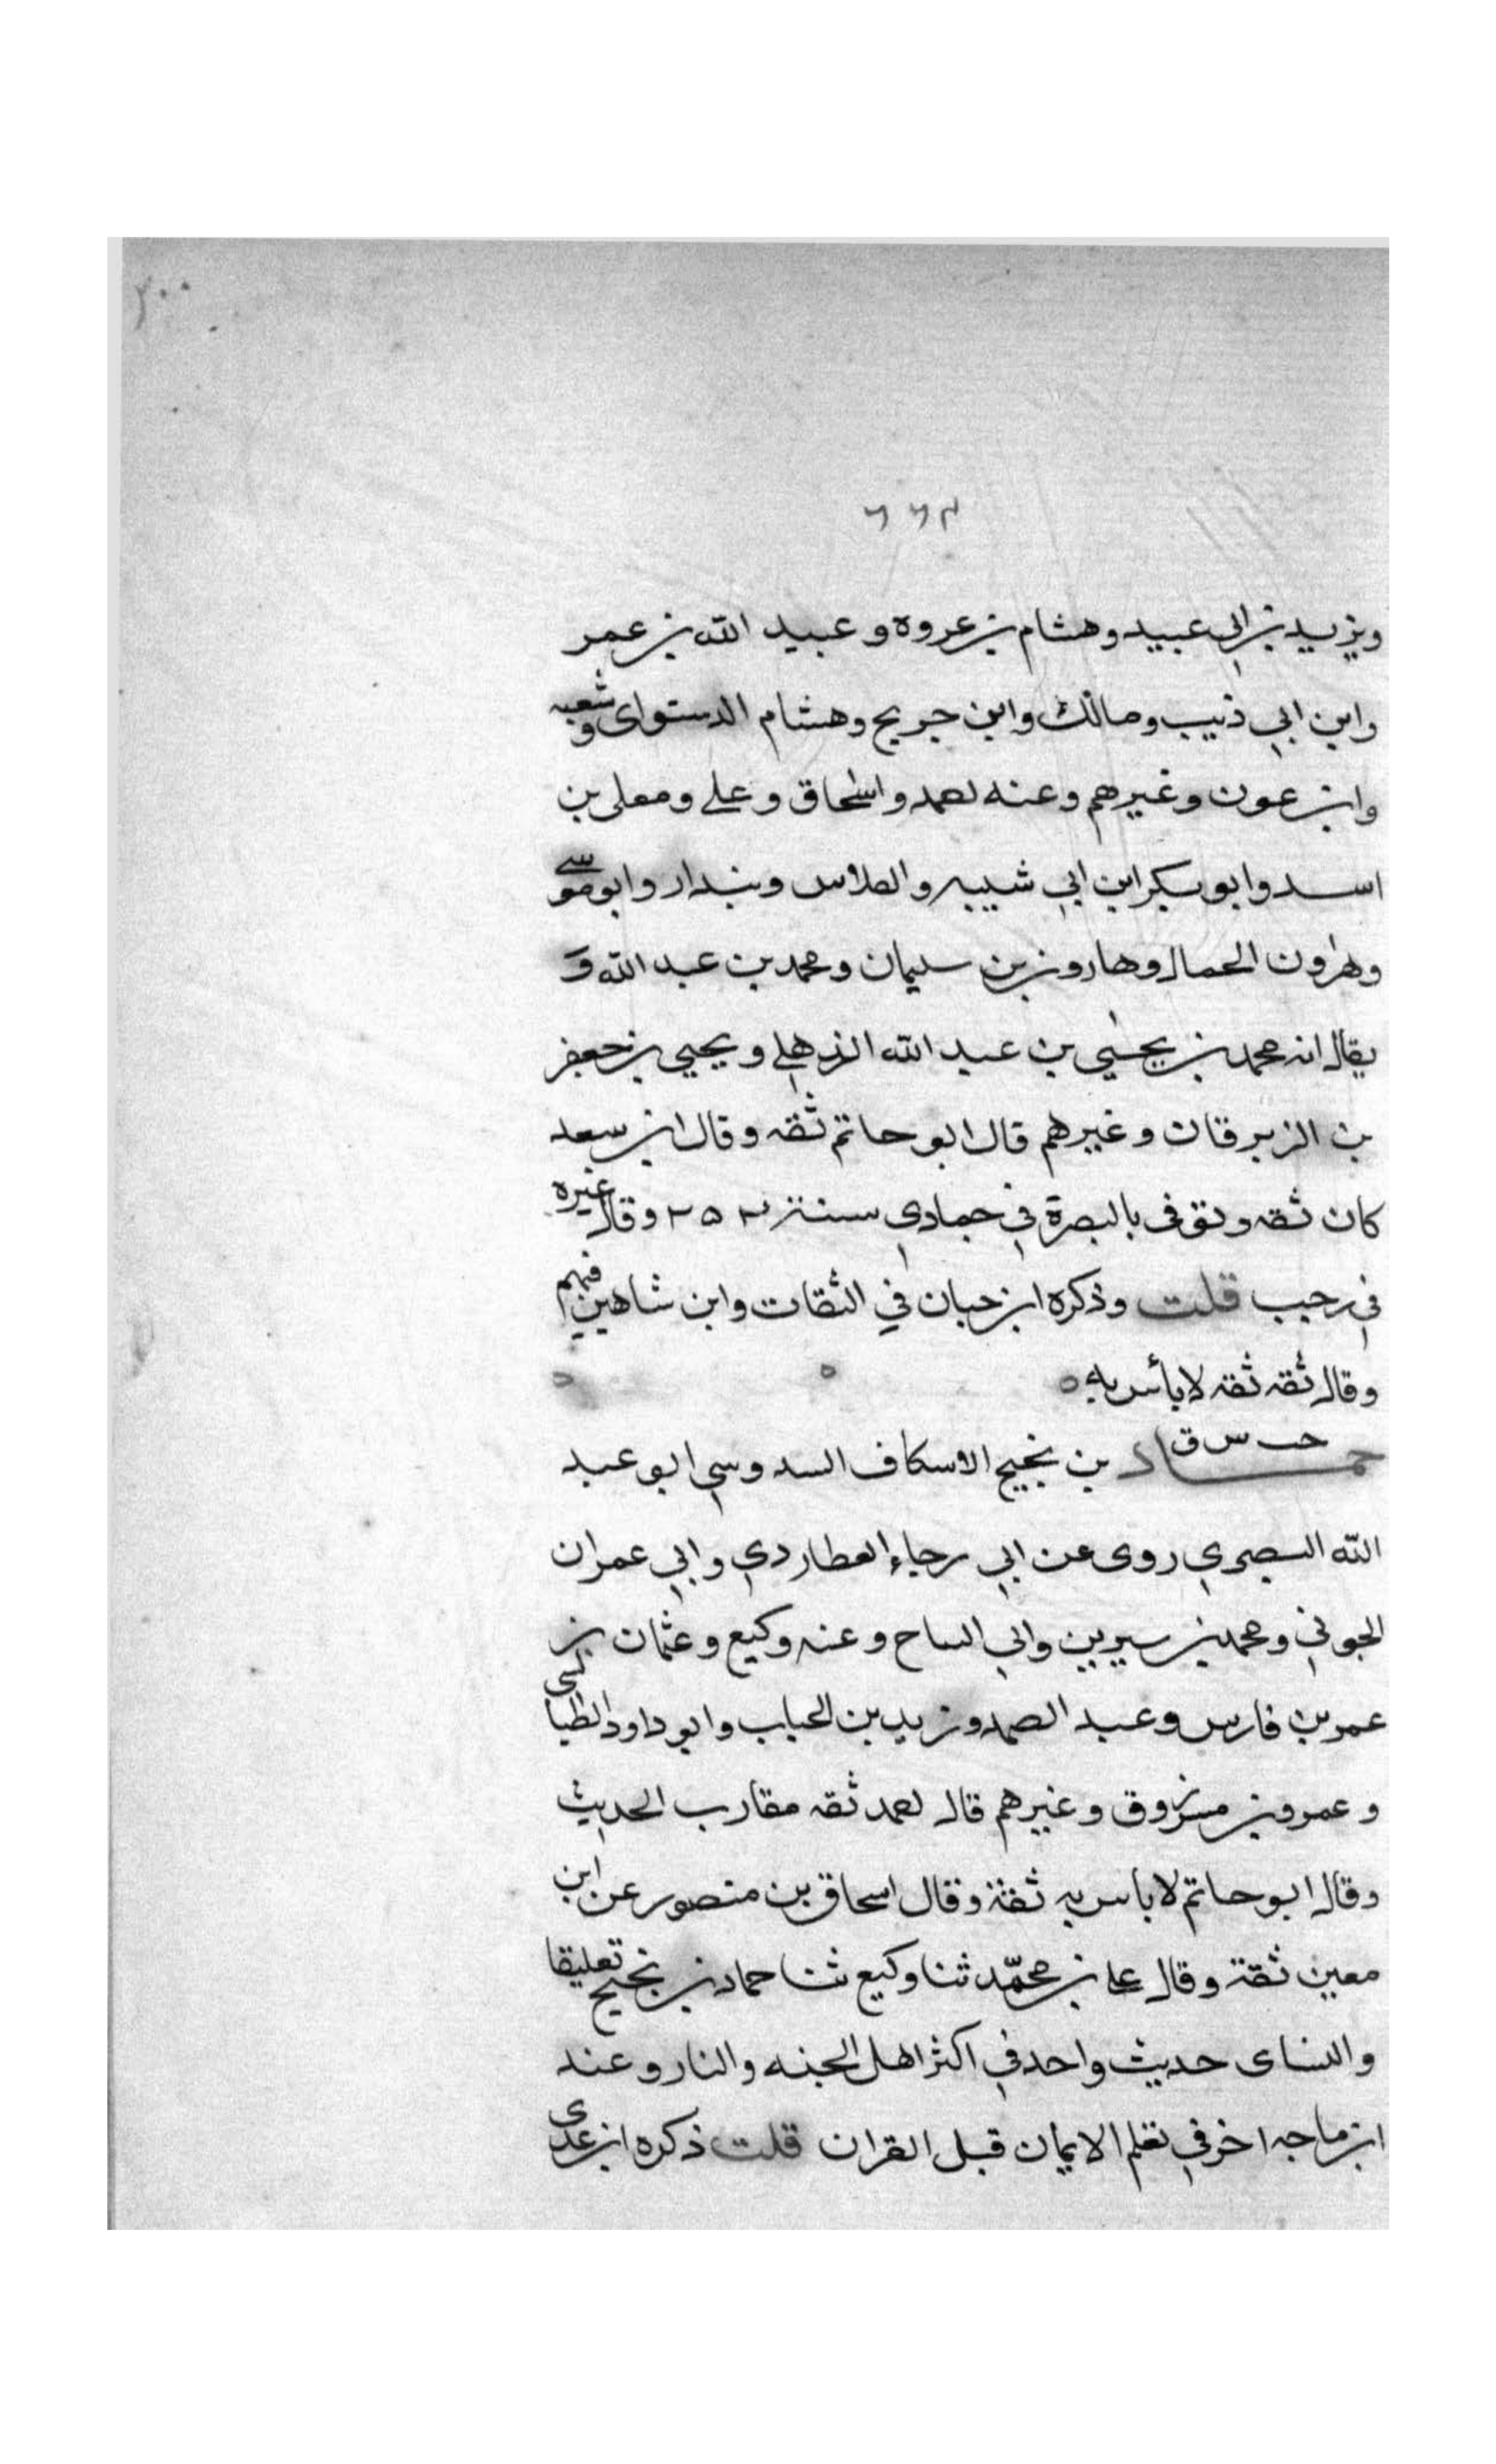 ٢٠٠
٦٦٣
ويزيد بن ابي عبيد وهشام بن عروه وعبيد الله بن عمر
وابن ابي ذئيب ومالك وابن جريج وهشام الدستواى وشعبه
وابن عون وغيرهم وعنه احمد واسحاق وعلي ومعلى بن
اسد وابو بكر ابن ابي شيبه والفلاس وبندار وابو موسى
وهارون الحمال وهارون بن سليمان ومحمد بن عبد الله و
يقال انه محمد بن يحيي بن عبد الله الذهلي ويحيي بن جعفر
بن الزبرقان وغيرهم قال ابو حاتم ثقه وقال ابن سعد
كان ثقه وتوفى بالبصرة في جمادي سنة ٢٥٢ وقال غيره
في رجب قلت وذكره ابن حبان في الثقات وابن شاهين فيهم
وقال ثقه ثقه لا بأس به
خت س ق
حماد بن نجيح الاسكاف السدوسي ابو عبد
الله البصري روى عن ابي رجاء العطاردي وابي عمران
الجوني ومحمد بن سيرين وابي التياح وعنه وكيع وعثمان بن
عمر بن فارس وعبد الصمد وزيد بن الحباب وابو داود الطيالسى
وعمرو بن مرزوق وغيرهم قال احمد ثقه مقارب الحديث
وقال ابو حاتم لا باس به ثقة وقال اسحاق بن منصور عن ابن
معين ثقة وقال علي بن محمد ثنا وكيع ثنا حماد بن نجيح تعليقا
والنساى حديث واحد في اكثر اهل الجنه والنار وعند
ابن ماجه اخر في تعلم الايمان قبل القران قلت ذكره ابن عدى